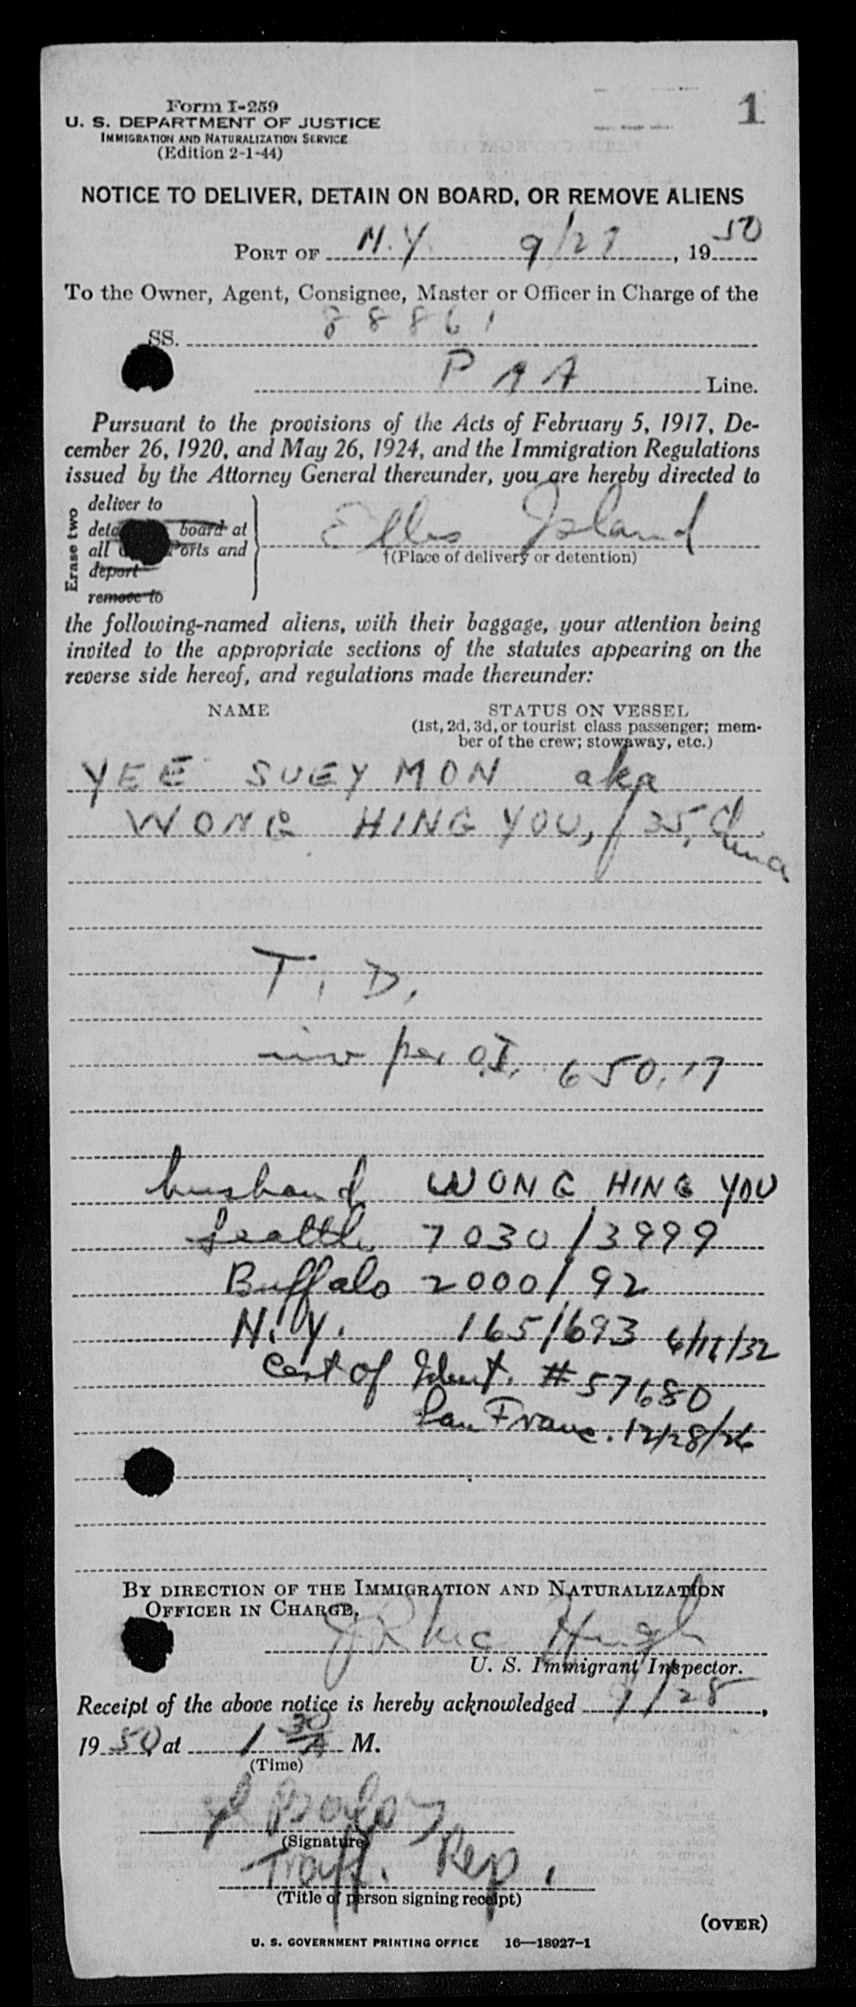 1
Form I-259
U. S. DEPARTMENT OF JUSTICE
IMMIGRATION AND NATURALIZATION SERVICE
(Edition 2-1-44)
NOTICE TO DELIVER, DETAIN ON BOARD, OR REMOVE ALIENS
PORT OF N.Y. 9/27, 1950
To the Owner, Agent, Consignee, Master or Officer in Charge of the
SS. 88861
PAA Line.
Pursuant to the provisions of the Acts of February 5, 1917, De-
cember 26, 1920, and May 26, 1924, and the Immigration Regulations
issued by the Attorney General thereunder, you are hereby directed to
Erase two
deliver to
board at
all and
deport
remove to
Ellis Island
†(Place of delivery or detention)
the following-named aliens, with their baggage, your attention being
invited to the appropriate sections of the statutes appearing on the
reverse side hereof, and regulations made thereunder:
NAME STATUS ON VESSEL
(1st, 2d, 3d, or tourist class passenger; mem-
ber of the crew; stowaway, etc.)
YEE SUEY MON aka
WONG HING YOU, f 35, China
T. D.
per O.I. 650.17
husband WONG HING YOU
Seattle 7030/3999
Buffalo 2000/92
N.Y. 165/693 6/16/32
Cert of Ident. #57680
San Franc. 12/28/26
BY DIRECTION OF THE IMMIGRATION AND NATURALIZATION
OFFICER IN CHARGE,
U. S. Immigrant Inspector.
Receipt of the above notice is hereby acknowledged 9/28,
1950 at 1 30 A M.
(Time)
(Signature)
Traff. Rep.
(Title of person signing receipt)
(OVER)
U. S. GOVERNMENT PRINTING OFFICE 16—18927-1